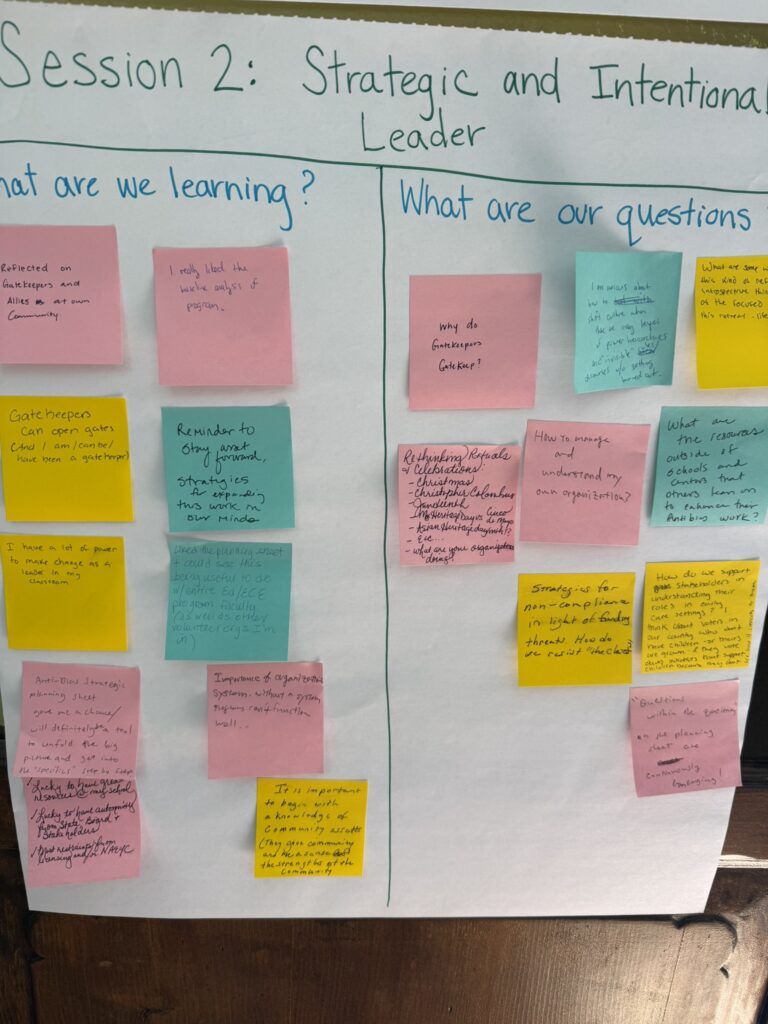 Session 2: Strategic and Intentional
Leader
hat are we learning?
Reflected on
Gatekeepers and
Allies at own
Community
I really liked the
analysis of
program.
Gatekeepers
Can open gates
(And I am/can be/
have been a gatekeeper)
Reminder to
stay asset
forward,
strategies
for expanding
this work in
our minds
I have a lot of power
to make change as a
leader in my
classroom
Used the planning sheet
& could see this
being useful to do
w/entire Ed/ECE
program faculty
(as well as other
volunteer orgs I'm
in)
Anti-Bias Strategic
planning sheet
gave me a chance/
will definitely be a tool
to unfold the big
picture and get into
the "specifics" step by step
Importance of organization
systems. without a system
programs can't function
well...
✓ Lucky to have great
resources @ my school
✓ Lucky to have autonomy
from State, Board &
Stakeholders
✓ Most restraints from
licensing and/or NAEYC
It is important
to begin with
a knowledge of
Community assets
(They give community
and the a sense of
the strengths of the
Community
What are our questions?
Why do
Gatekeepers
Gatekeep?
I'm curious about
how to
shift culture when
there are many layers
of power hierarchies
and "invisible" rules/
dynamics w/o getting
burned out.
What are some w
this kind of ref
introspective thin
of the focused
this retreat - like
Rethinking Rituals
& Celebrations:
- Christmas
- Christopher Columbus
- Juneteenth
- Heritage Days Cinco de Mayo
- Asian Heritage day/month?
- Etc...
- what are your organizations
doing?
How to manage
and
understand my
own organization?
What are
the resources
outside of
schools and
centers that
others lean on
to enhance their
Antibias work?
Strategies for
non-compliance
in light of funding
threats. How do
we resist "the
How do we support
Stakeholders in
understanding their
roles in early
care settings? I
think about voters in
our country who don't
have children - or theirs
are grown - if they vote
children because they don't
"Questions
within the questions"
on the planning
sheet are
enormously
engaging!